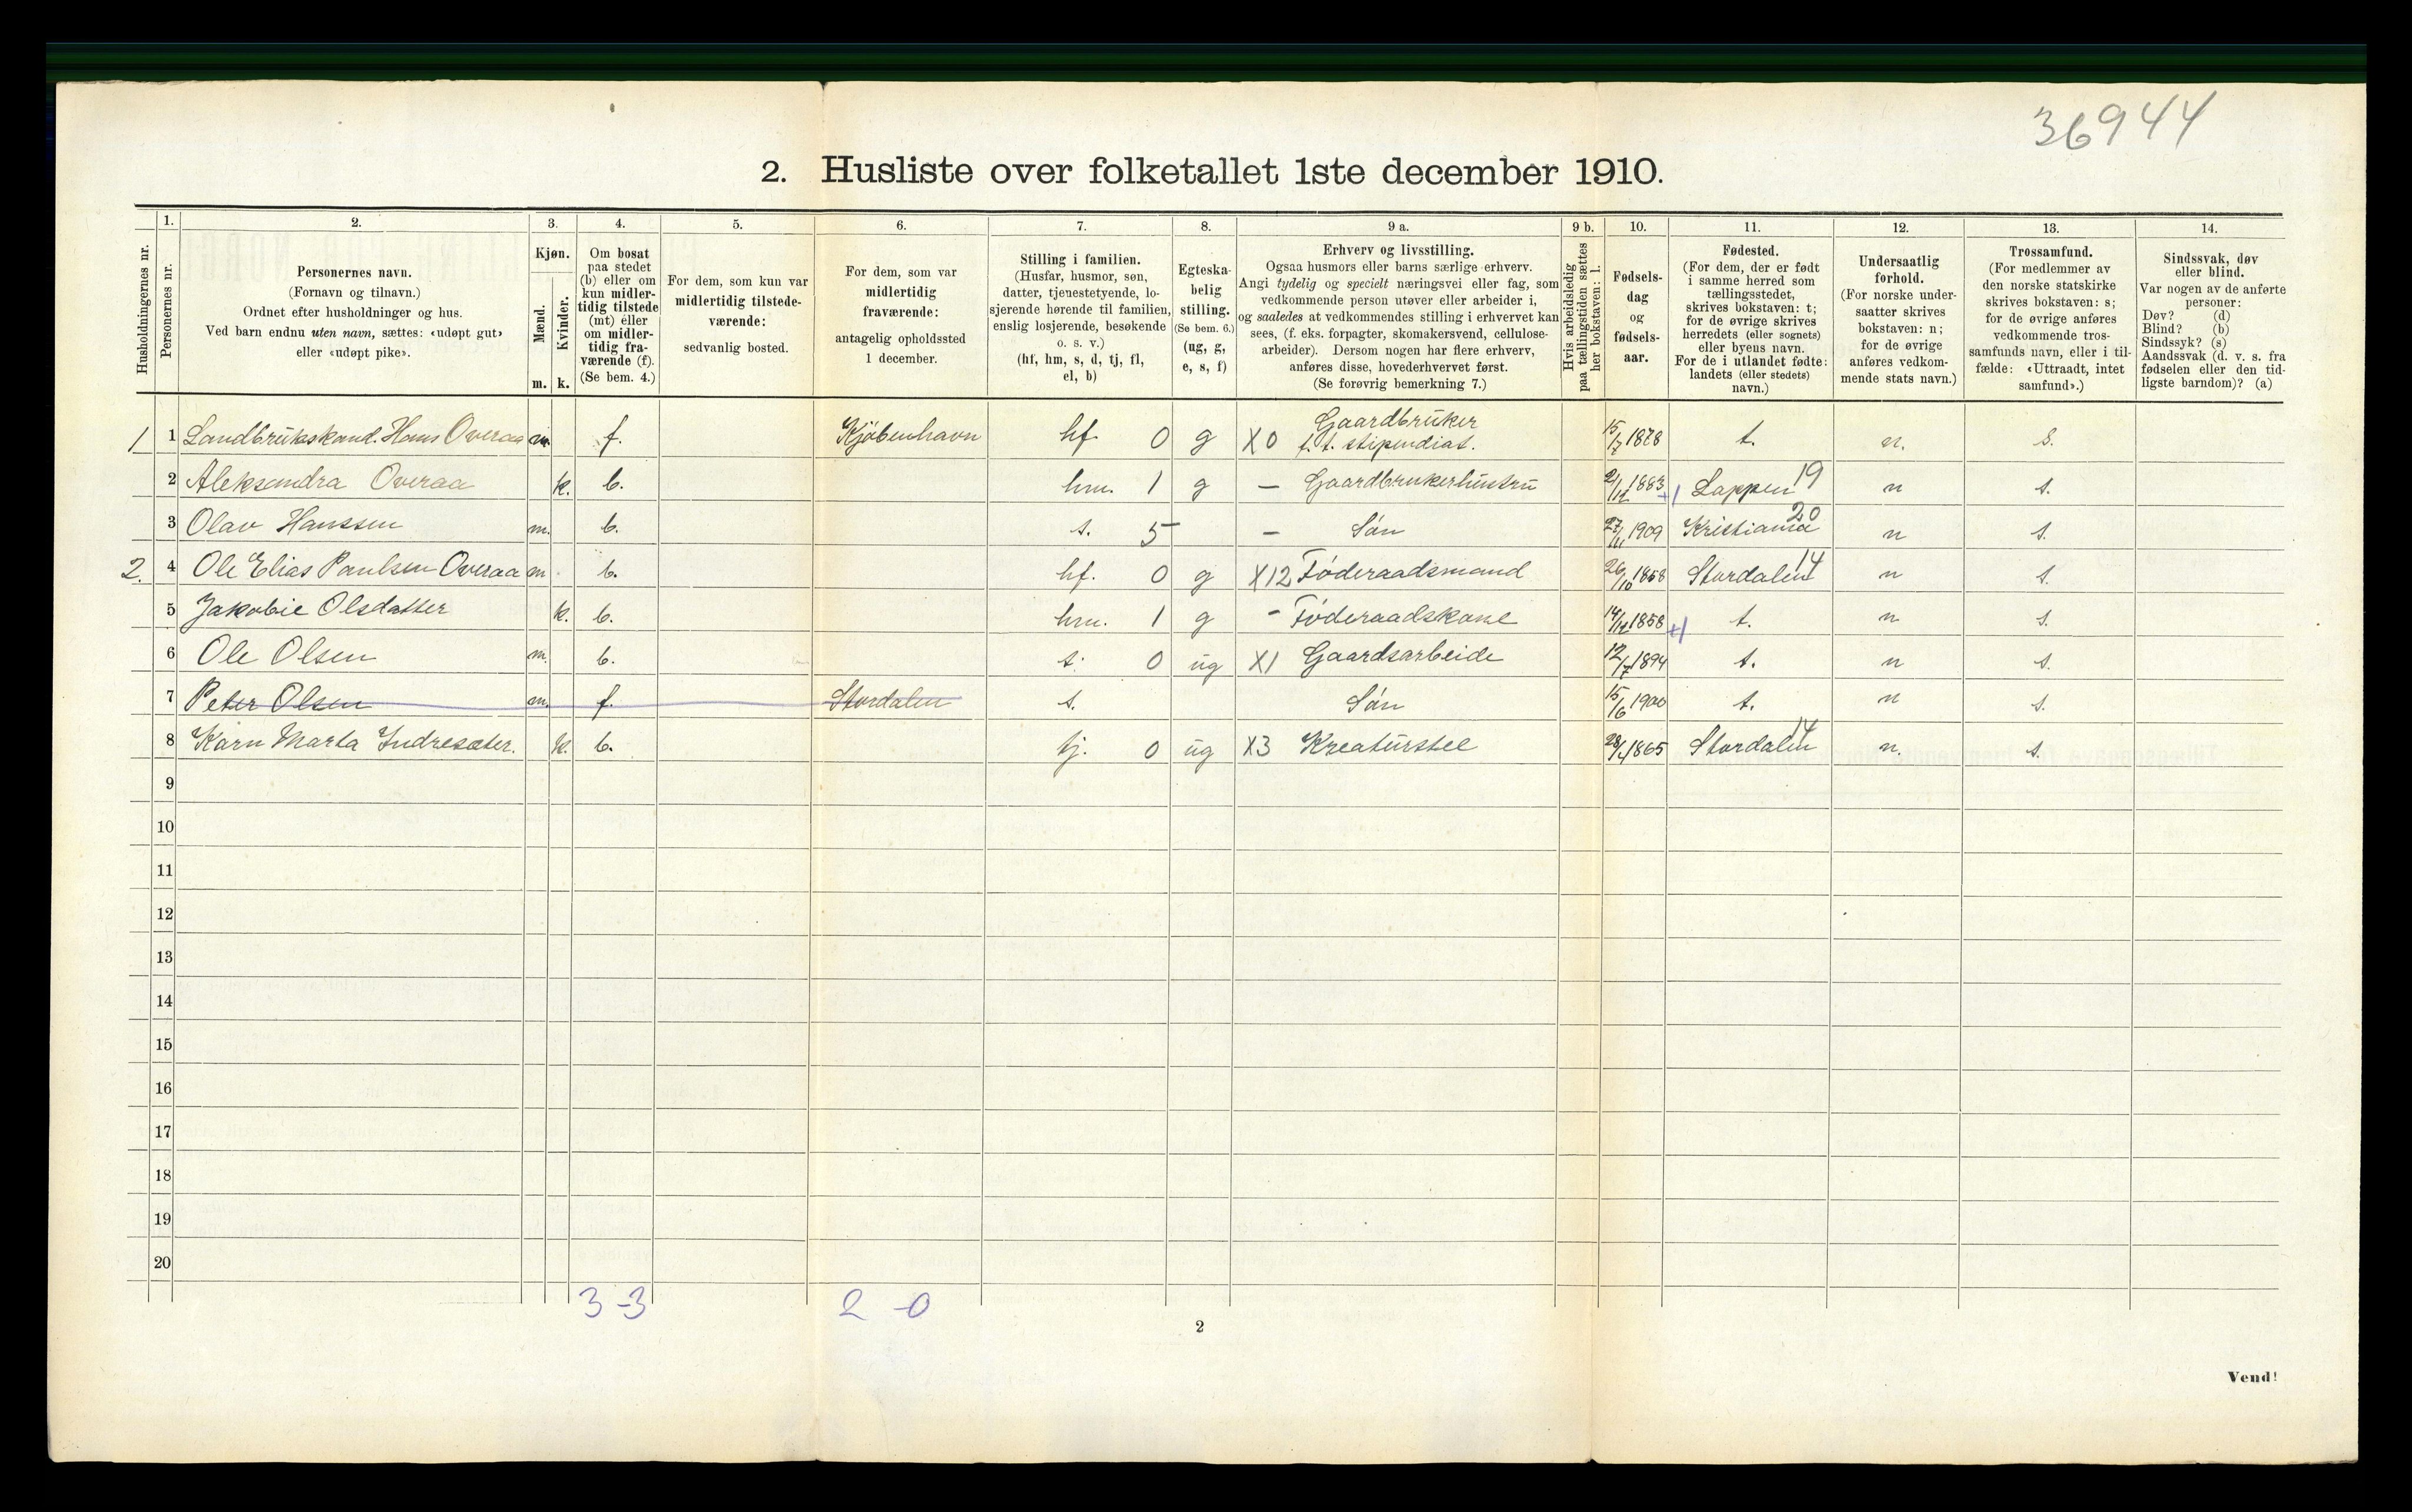 36944
2. Husliste over folketallet 1ste december 1910.
Husholdningernes nr.
1.
Personernes nr.
2.
Personernes navn.
(Fornavn og tilnavn.)
Ordnet efter husholdninger og hus.
Ved barn endnu uten navn, sættes: «udøpt gut»
eller «udøpt pike».
3.
Kjøn.
Mænd.
Kvinder.
m. k.
4.
Om bosat
paa stedet
(b) eller om
kun midler-
tidig tilstede
(mt) eller
om midler-
tidig fra-
værende (f).
(Se bem. 4.)
5.
For dem, som kun var
midlertidig tilstede-
værende:
sedvanlig bosted.
6.
For dem, som var
midlertidig
fraværende:
antagelig opholdssted
1 december.
7.
Stilling i familien.
(Husfar, husmor, søn,
datter, tjenestetyende, lo-
sjerende hørende til familien,
enslig losjerende, besøkende
o. s. v.)
(hf, hm, s, d, tj, fl,
el, b)
8.
Egteska-
belig
stilling.
(Se bem. 6.)
(ug, g,
e, s, f)
9 a.
Erhverv og livsstilling.
Ogsaa husmors eller barns særlige erhverv.
Angi tydelig og specielt næringsvei eller fag, som
vedkommende person utøver eller arbeider i,
og saaledes at vedkommendes stilling i erhvervet kan
sees, (f. eks. forpagter, skomakersvend, cellulose-
arbeider). Dersom nogen har flere erhverv,
anføres disse, hovederhvervet først.
(Se forøvrig bemerkning 7.)
9 b.
Hvis arbeidsledig
paa tællingstiden sættes
her bokstaven: l.
10.
Fødsels-
dag
og
fødsels-
aar.
11.
Fødested.
(For dem, der er født
i samme herred som
tællingsstedet,
skrives bokstaven: t;
for de øvrige skrives
herredets (eller sognets)
eller byens navn.
For de i utlandet fødte:
landets (eller stedets)
navn.)
12.
Undersaatlig
forhold.
(For norske under-
saatter skrives
bokstaven: n;
for de øvrige
anføres vedkom-
mende stats navn.)
13.
Trossamfund.
(For medlemmer av
den norske statskirke
skrives bokstaven: s;
for de øvrige anføres
vedkommende tros-
samfunds navn, eller i til-
fælde: «Uttraadt, intet
samfund».)
14.
Sindssvak, døv
eller blind.
Var nogen av de anførte
personer:
Døv? (d)
Blind? (b)
Sindssyk? (s)
Aandssvak (d. v. s. fra
fødselen eller den tid-
ligste barndom)? (a)
1 1 Landbrukskand. Hans Overaa m. f. Kjøbenhavn hf. 0 g X0 Gaardbruker
f. t. stipendiat. 15/7 1878 t. n. s.
2 Aleksandra Overaa k. b. hm. 1 g — Gaardbrukerhustru 1883 Lappen 19 n s.
3 Olav Hanssen m. b. s. 5 — Søn 27/11 1909 Kristiania 20 n s.
2. 4 Ole Elias Paulsen Overaa m b. hf. 0 g X12 Føderaadsmand 26/10 1858 Stordalen 14 n s.
5 Jakobie Olsdatter k. b. hm. 1 g - Føderaadskone 14/12 1858 t. n s.
6 Ole Olsen m. b. s. 0 ug X1 Gaardsarbeide 12/7 1894 t. n s.
7 Peter Olsen m. f. Stordalen s. Søn 15/6 1900 t. n s.
8 Karn Marta Indresæter. k. b. tj. 0 ug X3 Kreaturstel 28/4 1865 Stordalen 14 n. s.
9
10
11
12
13
14
15
16
17
18
19
20
3 -3 2 -0
2
Vend!